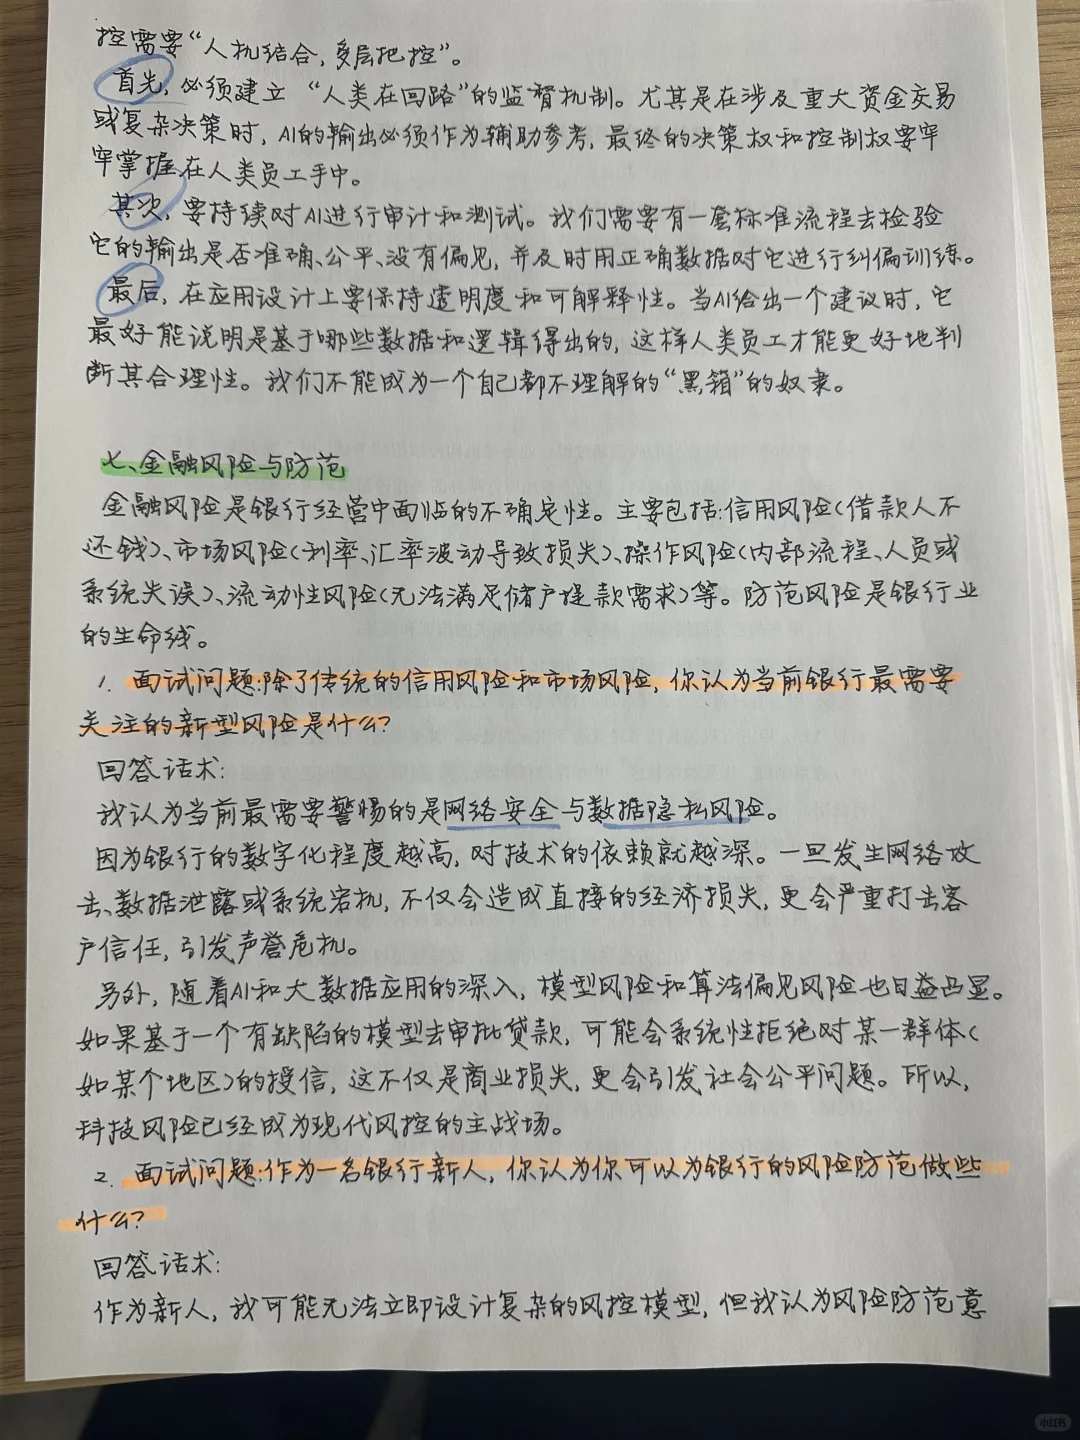 控需要“人机结合，多层把控”。
首先，必须建立“人类在回路”的监督机制。尤其是在涉及重大资金交易
或复杂决策时，AI的输出必须作为辅助参考，最终的决策权和控制权要牢
牢掌握在人类员工手中。
其次，要持续对AI进行审计和测试。我们需要有一套标准流程去检验
它的输出是否准确、公平、没有偏见，并及时用正确数据对它进行纠偏训练。
最后，在应用设计上要保持透明度和可解释性。当AI给出一个建议时，它
最好能说明是基于哪些数据和逻辑得出的，这样人类员工才能更好地判
断其合理性。我们不能成为一个自己都不理解的“黑箱”的奴隶。
七、金融风险与防范
金融风险是银行经营中面临的不确定性。主要包括：信用风险（借款人不
还钱）、市场风险（利率、汇率波动导致损失）、操作风险（内部流程、人员或
系统失误）、流动性风险（无法满足储户提款需求）等。防范风险是银行业
的生命线。
1. 面试问题：除了传统的信用风险和市场风险，你认为当前银行最需要
关注的新型风险是什么？
回答话术：
我认为当前最需要警惕的是网络安全与数据隐私风险。
因为银行的数字化程度越高，对技术的依赖就越深。一旦发生网络攻
击、数据泄露或系统宕机，不仅会造成直接的经济损失，更会严重打击客
户信任，引发声誉危机。
另外，随着AI和大数据应用的深入，模型风险和算法偏见风险也日益凸显。
如果基于一个有缺陷的模型去审批贷款，可能会系统性拒绝对某一群体（
如某个地区）的授信，这不仅是商业损失，更会引发社会公平问题。所以，
科技风险已经成为现代风控的主战场。
2. 面试问题：作为一名银行新人，你认为你可以为银行的风险防范做些
什么？
回答话术：
作为新人，我可能无法立即设计复杂的风控模型，但我认为风险防范意
小红书